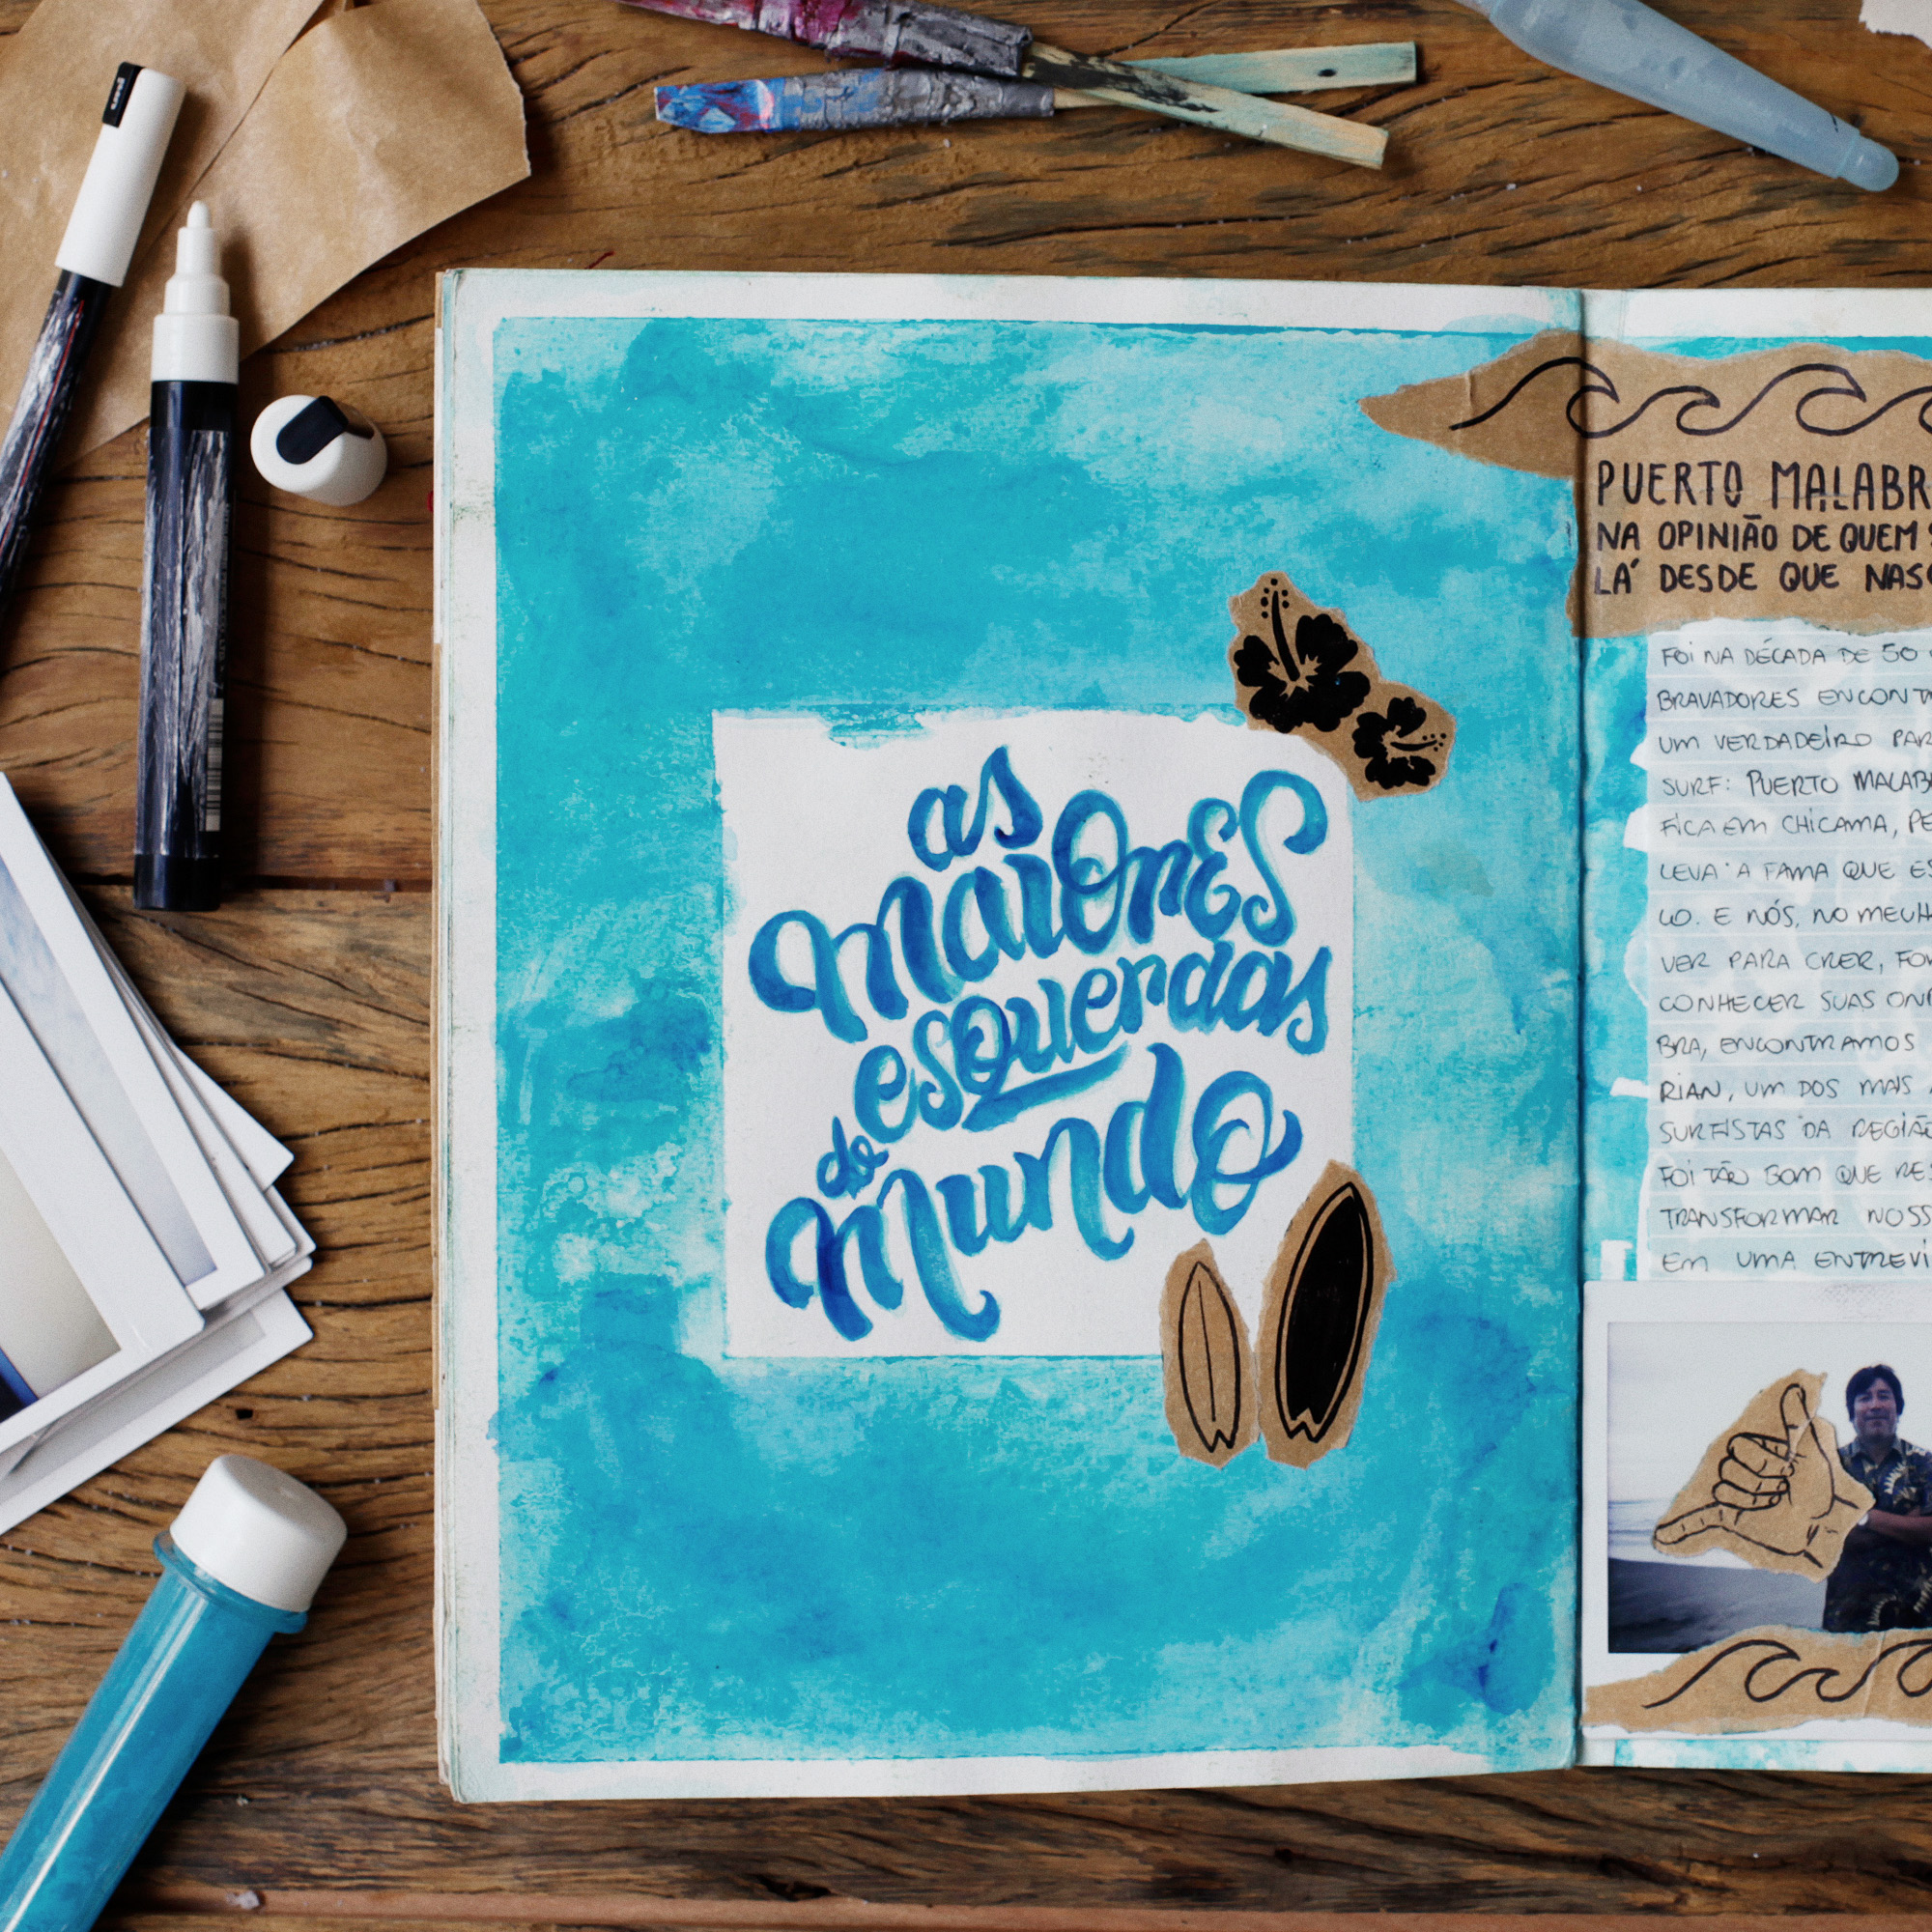 uni
as
maiores
esquerdas
do
mundo
PUERTO MALABR
NA OPINIÃO DE QUEM
LÁ DESDE QUE NASC
FOI NA DÉCADA DE 50
BRAVADORES ENCONTR
UM VERDADEIRO PAR
SURF: PUERTO MALAB
FICA EM CHICAMA, PE
LEVA A FAMA QUE ES
LO. E NÓS, NO MELH
VER PARA CRER, FOM
CONHECER SUAS OND
BRA, ENCONTRAMOS
RIAN, UM DOS MAIS
SURFISTAS DA REGIÃO
FOI TÃO BOM QUE RES
TRANSFORMAR NOSS
EM UMA ENTREVI